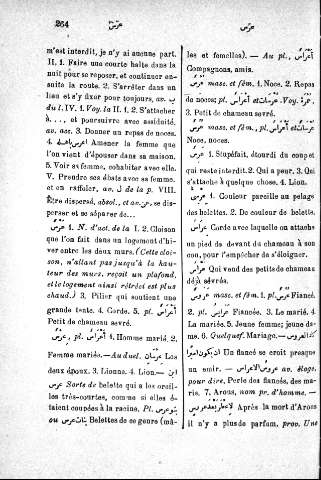 264 عرش عرس
m'est interdit, je n'y ai aucune part.
II. 1. Faire une courte halte dans la
nuit pour se reposer, et continuer en-
suite la route. 2. S'arrêter dans un
lieu et s'y fixer pour toujours, av. ب
du l. IV. 1. Voy. la II. 1. 2. S'attacher
à..., et poursuivre avec assiduité,
av. acc. 3. Donner un repas de noces.
4. Amener la femme que
l'on vient d'épouser dans sa maison.
5. Voir sa femme, cohabiter avec elle.
V. Prendre ses ébats avec sa femme
et en raffoler, av. ل de la p. VIII.
Être dispersé, absol., et av. عن, se dis-
perser et se séparer de...
عرس 1. N. d'act. de la I. 2. Cloison
que l'on fait dans un logement d'hi-
ver entre les deux murs. (Cette cloi-
son, n'allant pas jusqu'à la hau-
teur des murs, reçoit un plafond,
et le logement ainsi rétréci est plus
chaud.) 3. Pilier qui soutient une
grande tente. 4. Corde. 5. pl. أعراس
Petit de chameau sevré.
عرس, pl. أعراس 1. Homme marié. 2.
Femme mariée. — Au duel, عرسان Les
deux époux. 3. Lionne. 4. Lion. — ابن
عرس Sorte de belette qui a les oreil-
les très-courtes, comme si elles é-
taient coupées à la racine. Pl. بنو عرس
ou بنات عرس Belettes de ce genre (mâ-
les et femelles). — Au pl., أعراس
Compagnons, amis.
عرس masc. et fém. 1. Noce. 2. Repas
de noces; pl. أعراس et عرسات. Voy. عرس.
3. Petit de chameau sevré.
عرس masc. et fém., pl. أعراس et عرسات
Noce, noces.
عرس 1. Stupéfait, étourdi du coup et
qui reste interdit. 2. Qui a peur. 3. Qui
s'attache à quelque chose. 4. Lion.
1. Couleur pareille au pelage
des belettes. 2. De couleur de belette.
عراس Corde avec laquelle on attache
un pied de devant du chameau à son
cou, pour l'empêcher de s'éloigner.
عراس Qui vend des petits de chameau
déjà sevrés.
عروس masc. et fém. 1. pl. عرس Fiancé.
2. pl. عرائس Fiancée. 3. Le marié. 4.
La mariée. 5. Jeune femme; jeune da-
me. 6. Quelquef. Mariage. —
Un fiancé se croit presque
un emir. — av. Rogs.
pour dire, Perle des fiancés, des ma-
riés. 7. Arous, nom pr. d'homme. —
لا عطر بعد عروس Après la mort d'Arous
il n'y a plus de parfum, prov. Une